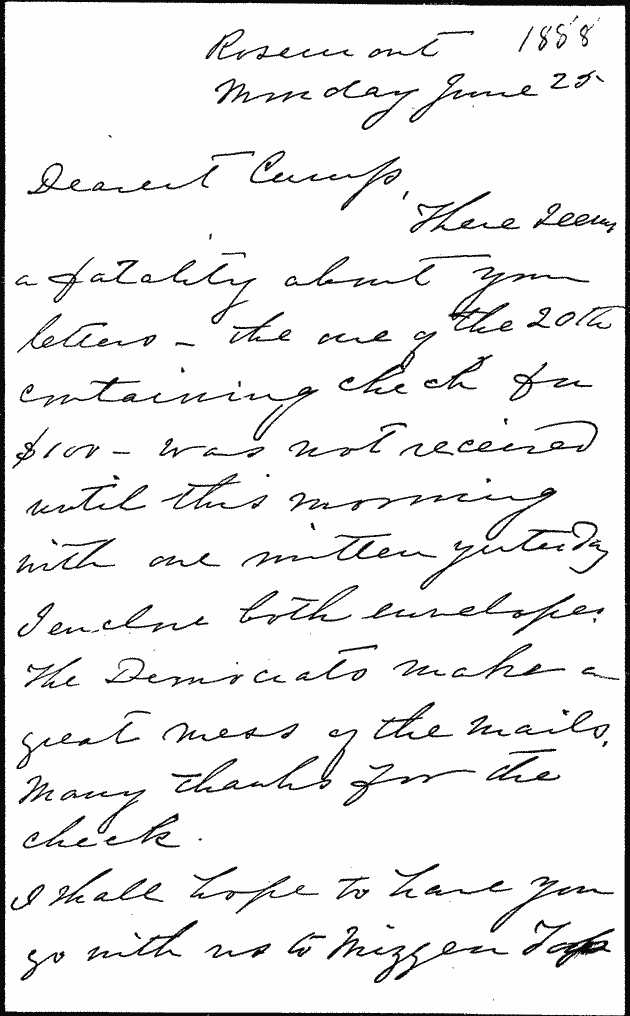 Rosemont 1888
Monday June 25
Dearest Cump,
There seems
a fatality about your
letters – the one of the 20th
containing check for
$100 – was not received
until this morning
with one written yesterday
I enclose both envelopes.
The Democrats make a
great mess of the mails.
Many thanks for the
check.
I shall hope to have you
go with us to Mizzen Top